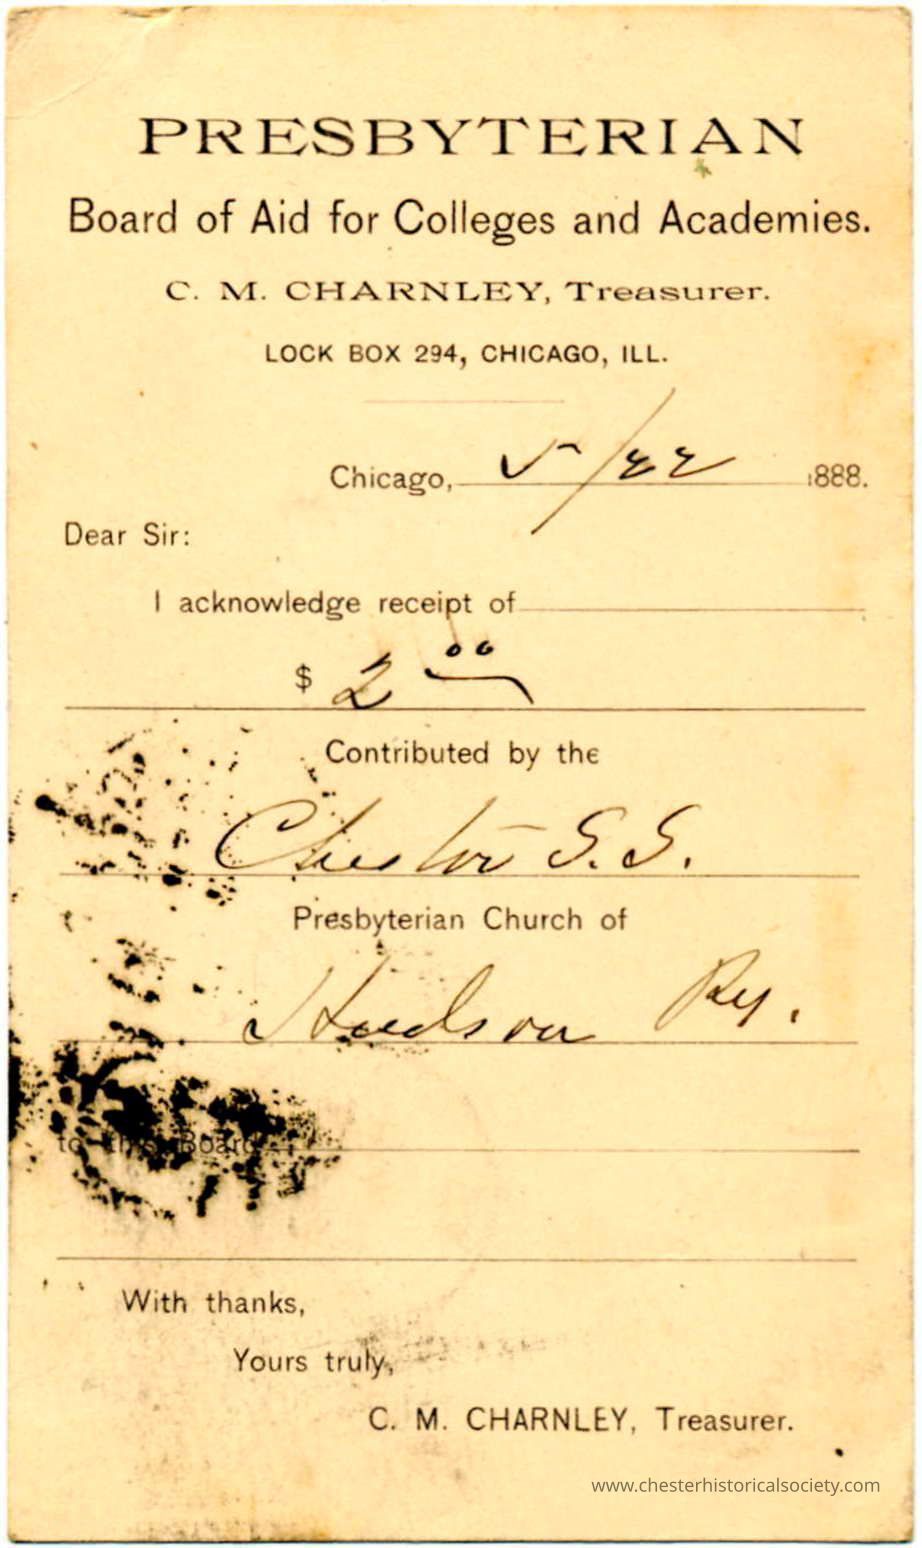 PRESBYTERIAN
Board of Aid for Colleges and Academies.
C. M. CHARNLEY, Treasurer.
LOCK BOX 294, CHICAGO, ILL.
Chicago, 5/22 1888.
Dear Sir:
I acknowledge receipt of
$ 2 00
Contributed by the
Chester S. S.
Presbyterian Church of
Hudson Py.
to this Board
With thanks,
Yours truly,
C. M. CHARNLEY, Treasurer.
www.chesterhistoricalsociety.com